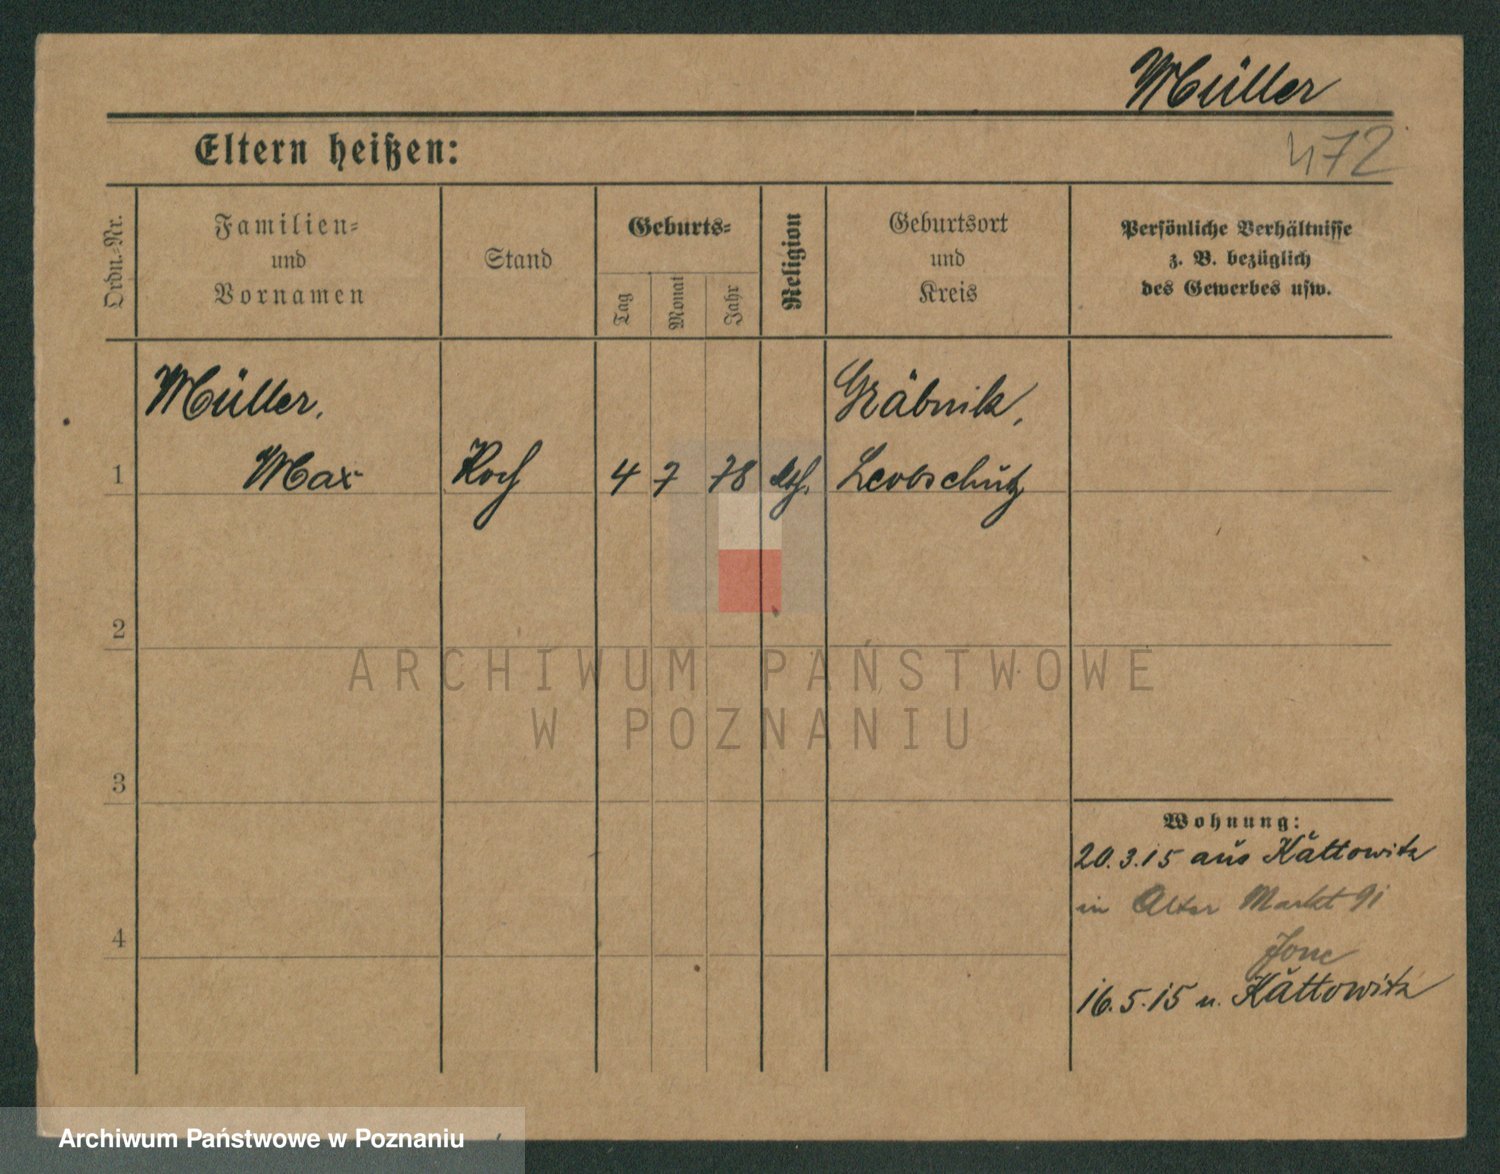 Müller
472
Eltern heißen:
Ordn.-Nr.
Familien-
und
Vornamen
Stand
Geburts-
Tag
Monat
Jahr
Religion
Geburtsort
und
Kreis
Persönliche Verhältnisse
z. B. bezüglich
des Gewerbes usw.
Müller,
Gräbnik,
1 Max Koch 4 7 78 kth. Leobschütz
2
3
4
Wohnung:
20.3.15 aus Kattowitz
in Alter Markt 91
16.5.15 n. Kattowitz
ARCHIWUM PAŃSTWOWE
W POZNANIU
Archiwum Państwowe w Poznaniu